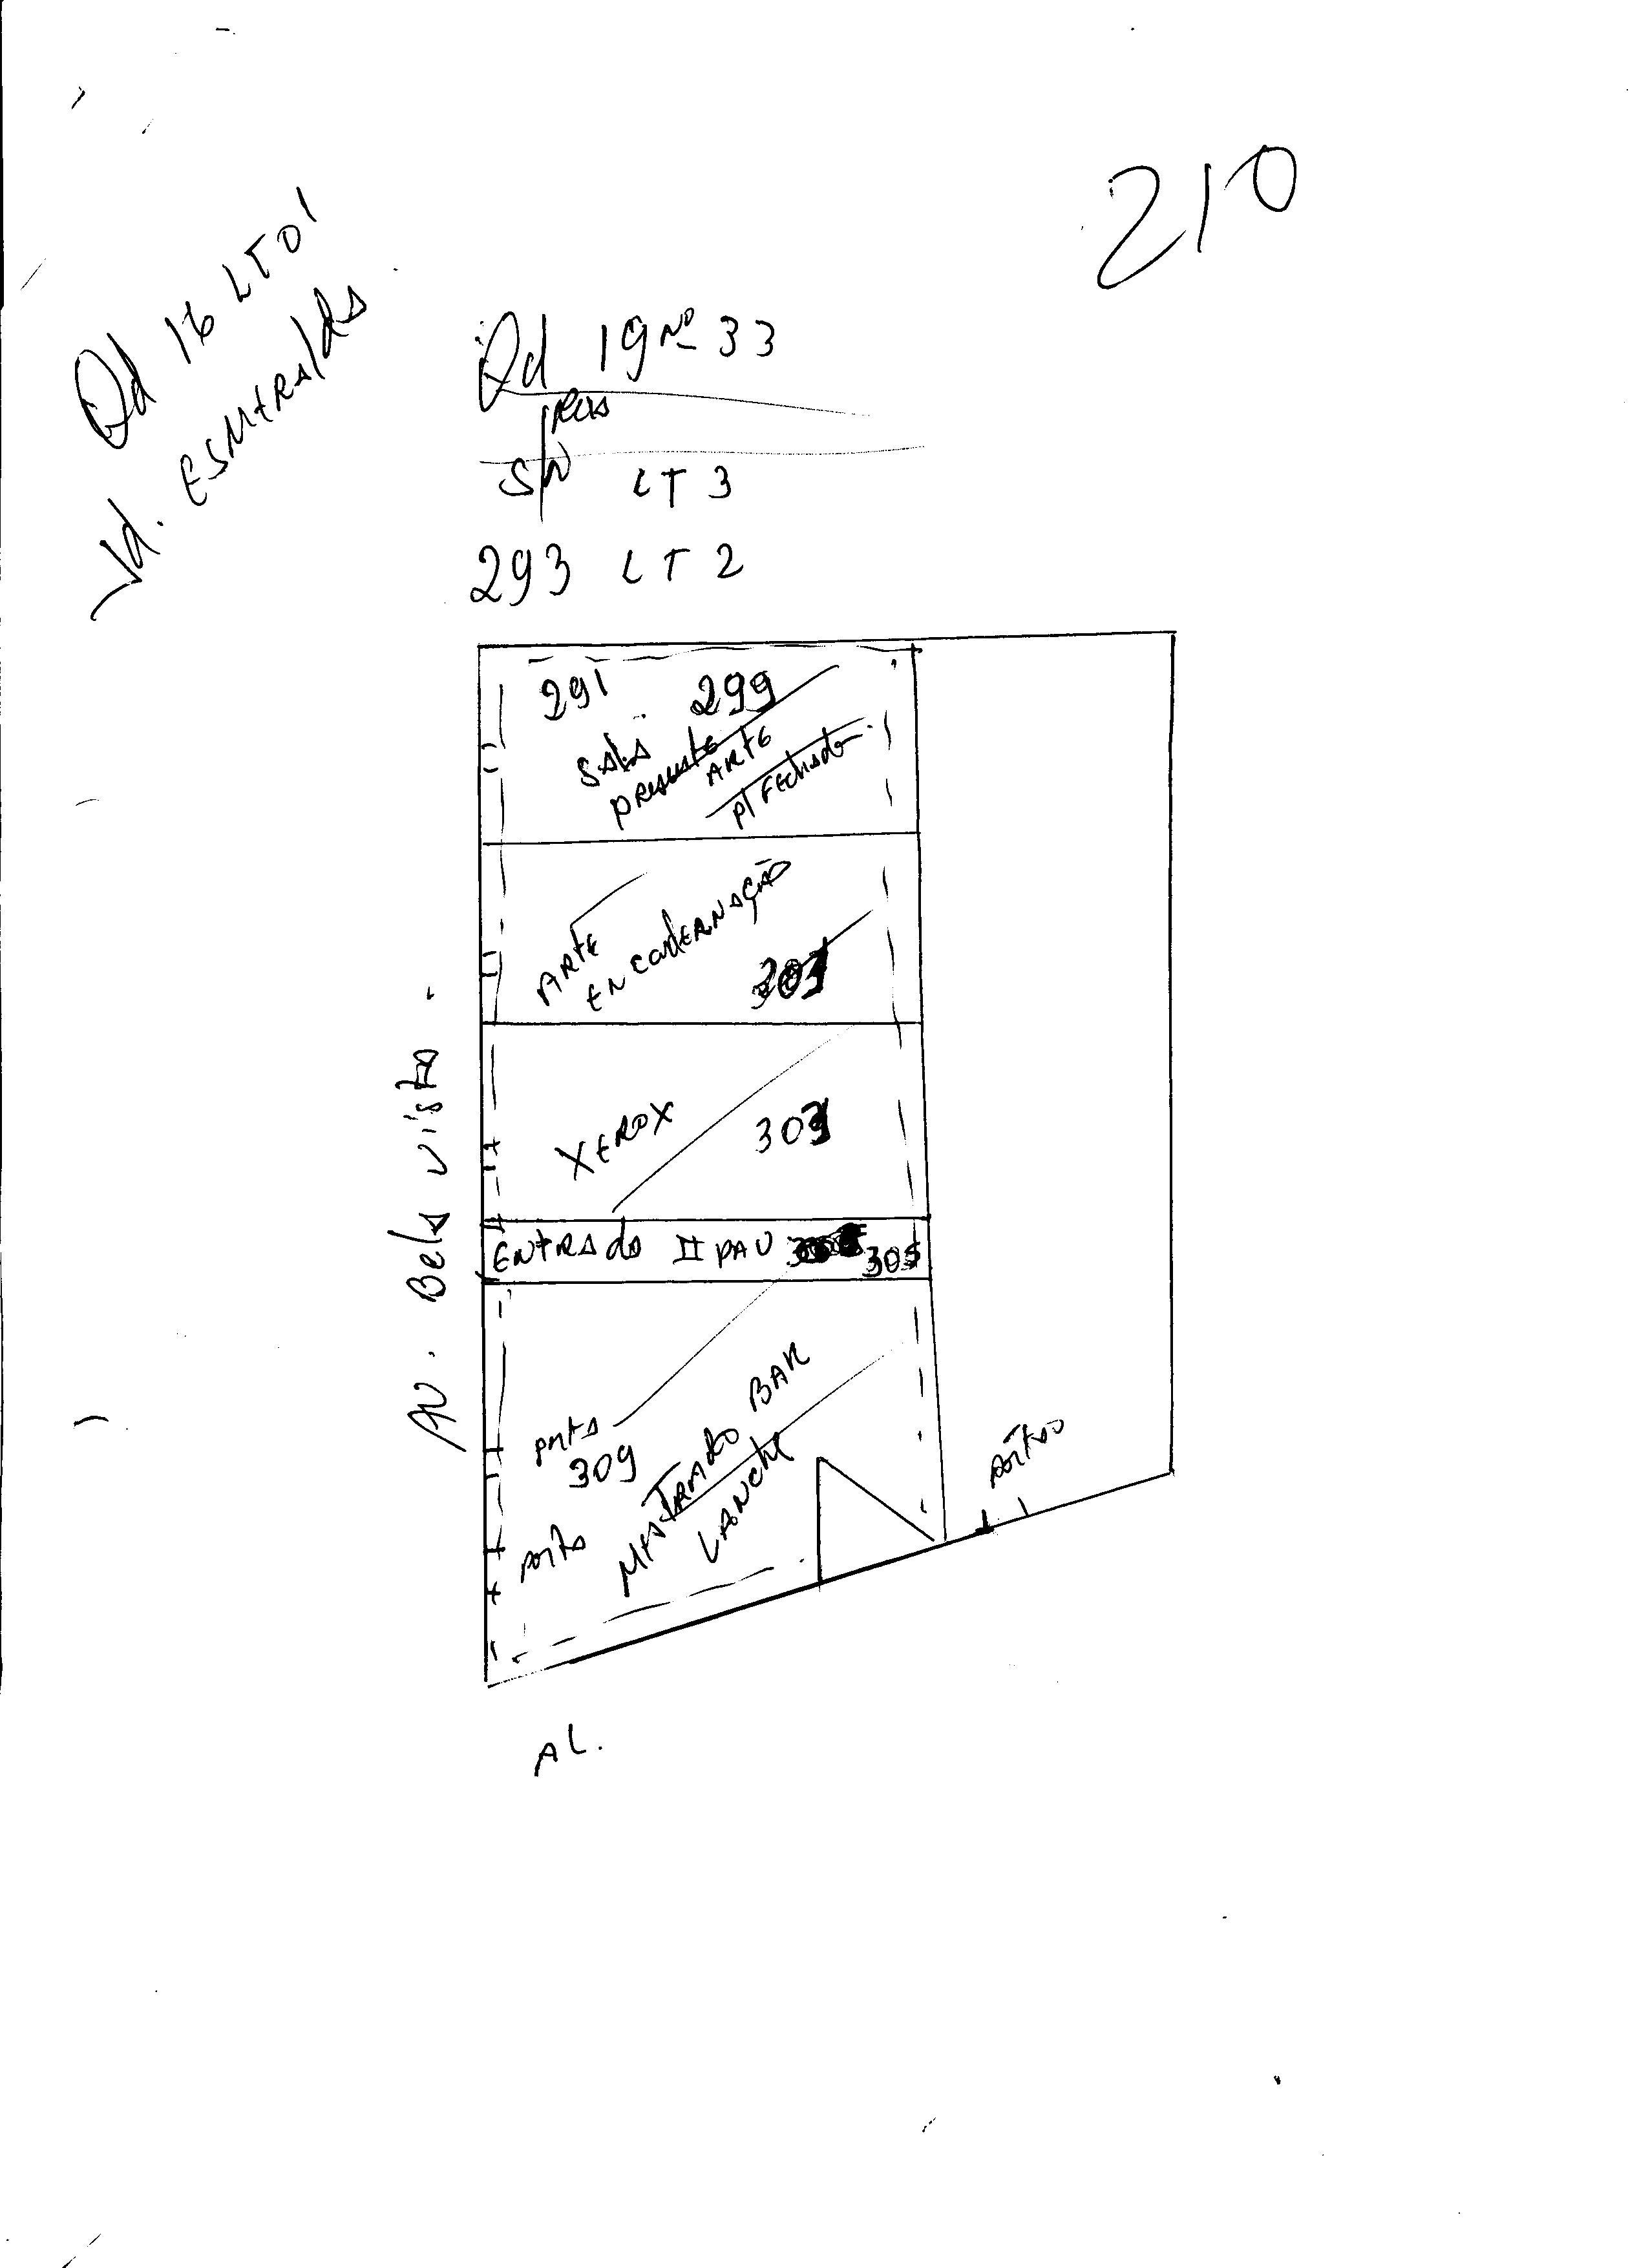 210
Qd 16 LT 01
Jd. ESMERALDA
Qd 19 Nº 33
RUA
S/N LT 3
293 LT 2
291 299
SALA
ARTE
P/ FECHADA
ARTE
ENCADERNAÇÃO
XEROX 303
ENTRADA II PAV 305
AV. Bela vista.
porta
309
BAR
LANCHE
porta
portão
AL.